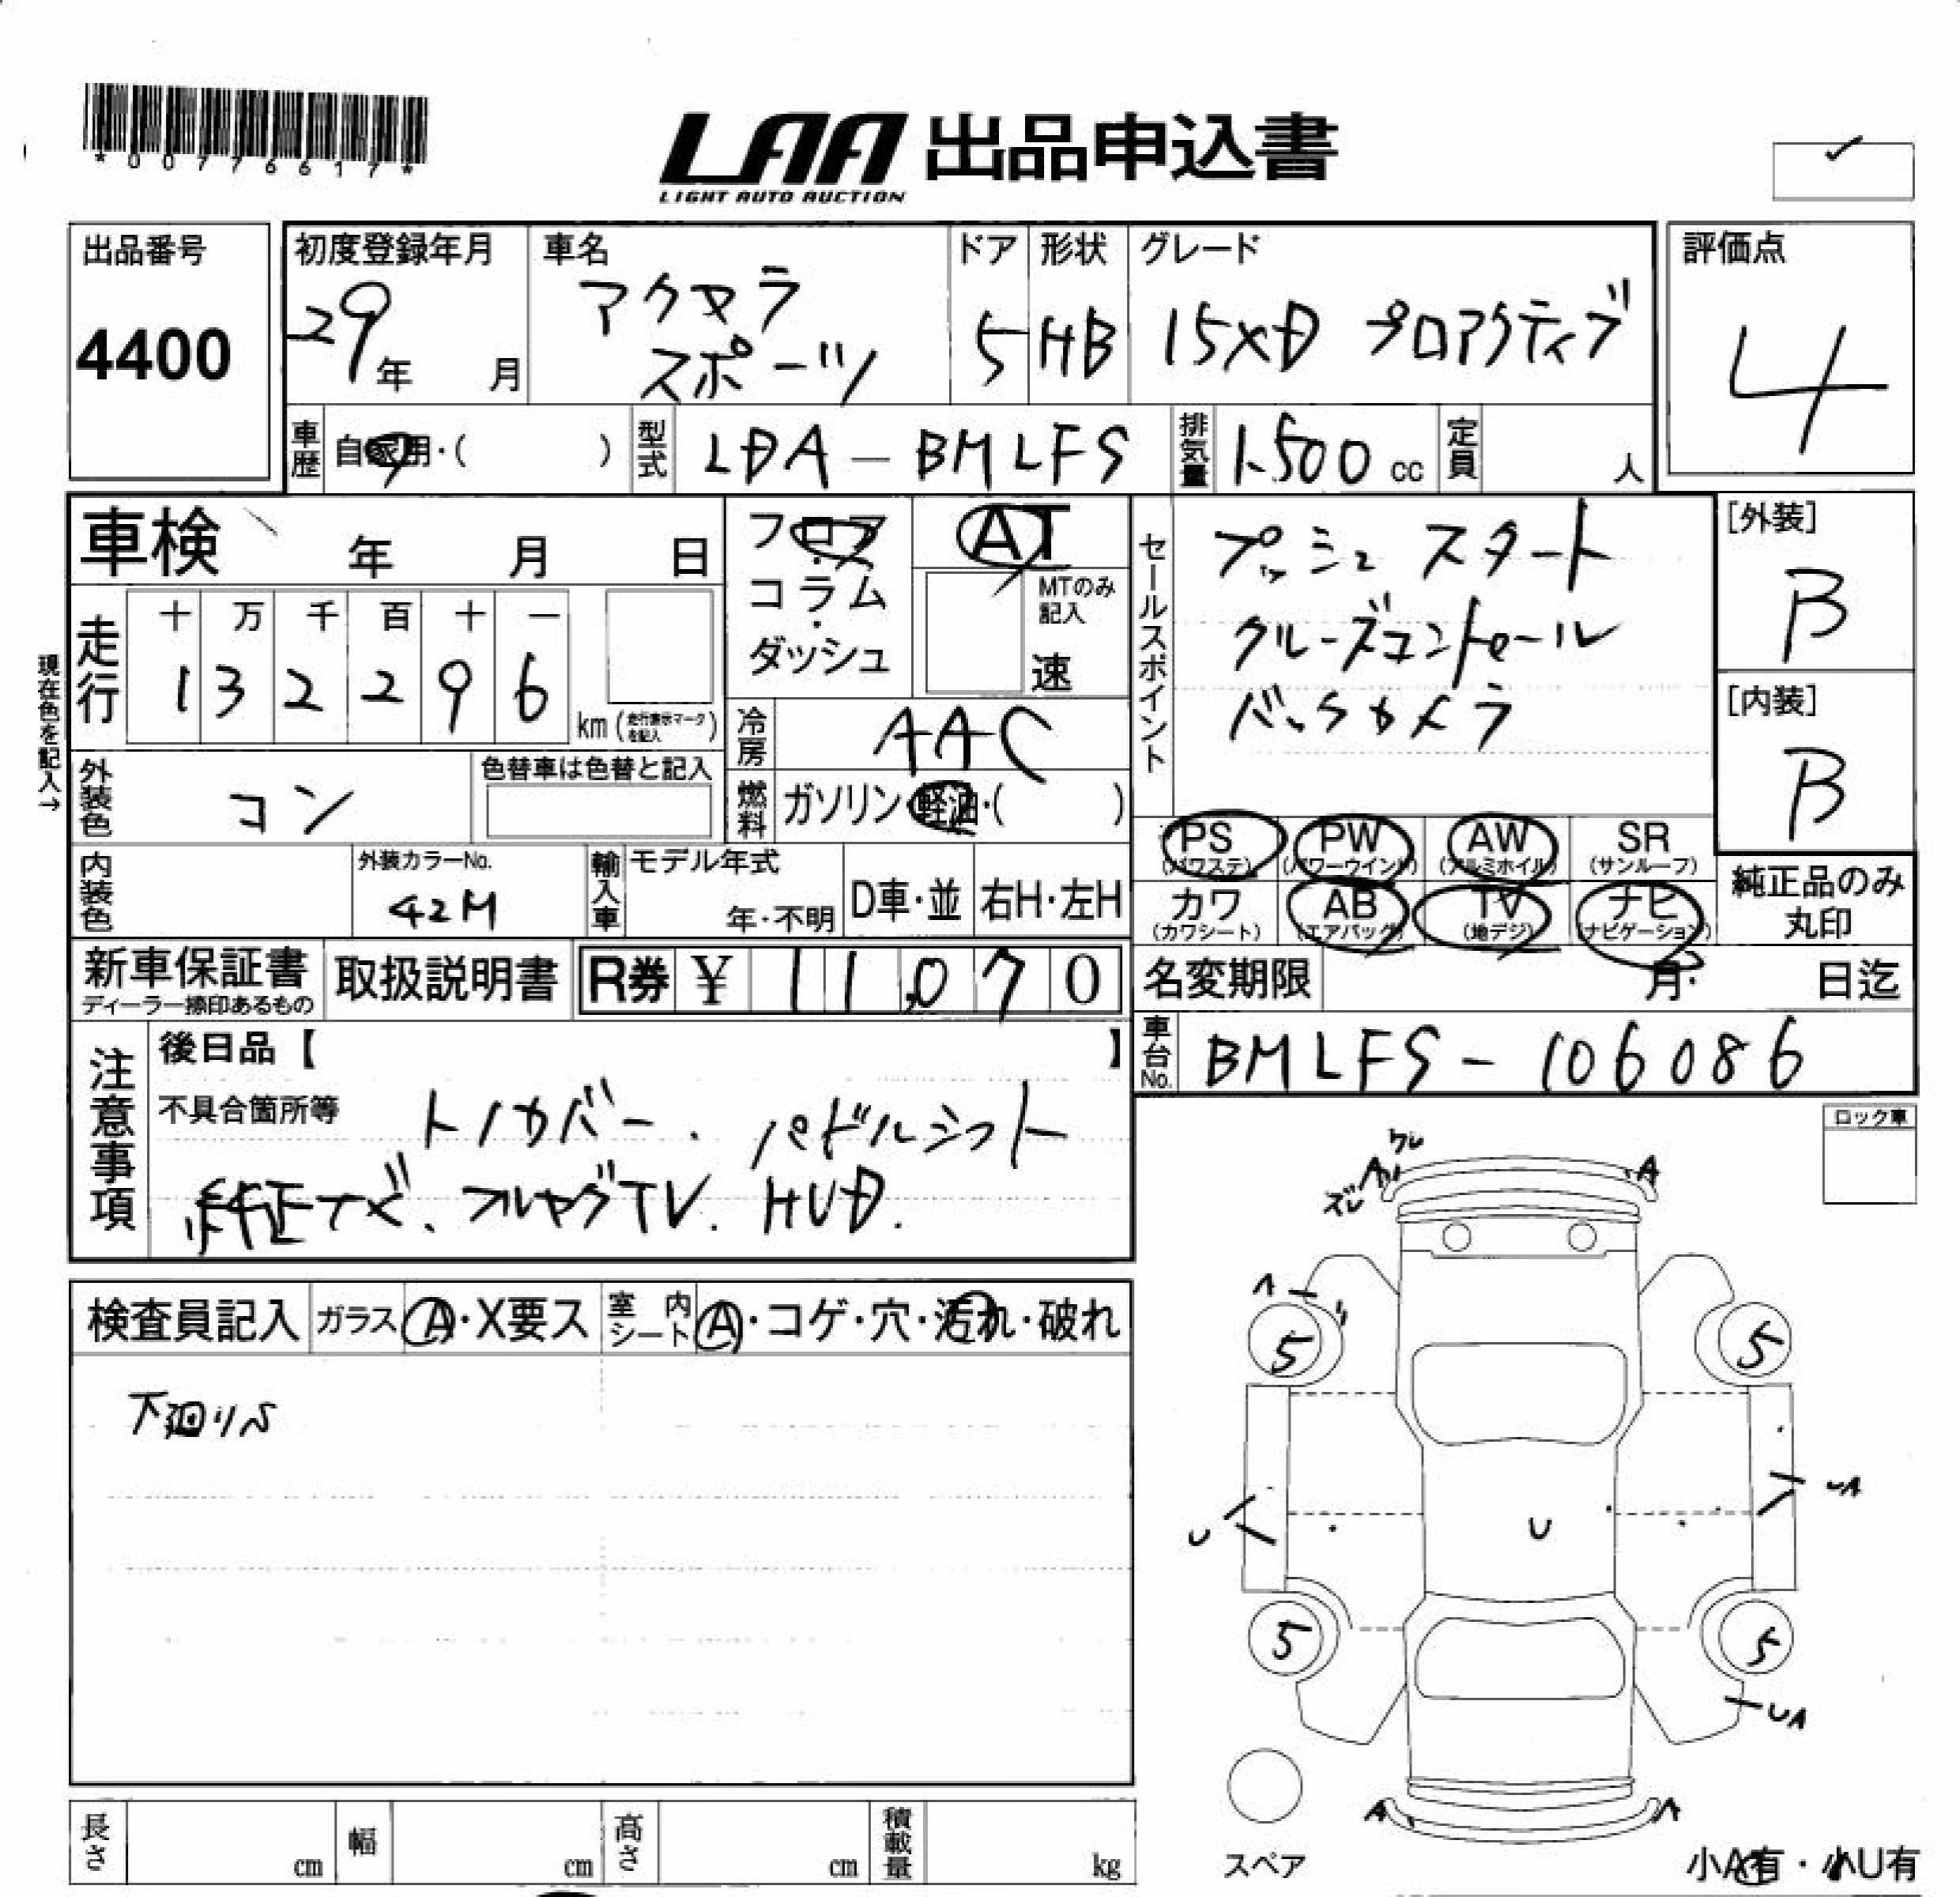 *00776617*
LAA 出品申込書
LIGHT AUTO AUCTION
出品番号
4400
初度登録年月
29年 月
車名
アクセラ
スポーツ
ドア
5
形状
HB
グレード
15XD プロアクティブ
評価点
4
車歴 自家用・( )
型式 LDA-BMLFS
排気量 1.500 cc
定員 人
車検 年 月 日
フロア
コラム
・
ダッシュ
AT
MTのみ
記入
速
セールスポイント
プッシュスタート
クルーズコントロール
バックカメラ
[外装]
B
[内装]
B
現在色を記入→
走行
十 万 千 百 十 一
1 3 2 2 9 6
km (走行表示マークを記入)
冷房 AAC
燃料 ガソリン・軽油・( )
外装色 コン
色替車は色替と記入
内装色
外装カラーNo.
42M
輸入車
モデル年式
年・不明
D車・並
右H・左H
PS (パワステ)
PW (パワーウインド)
AW (アルミホイル)
SR (サンルーフ)
カワ (カワシート)
AB (エアバッグ)
TV (地デジ)
ナビ (ナビゲーション)
純正品のみ
丸印
新車保証書
ディーラー捺印あるもの
取扱説明書
R券 ¥ 11,070
名変期限 月 日迄
車台No. BMLFS-106086
注意事項
後日品【 】
不具合箇所等
トノカバー. パドルシフト
純正ナビ、フルセグTV. HUD.
ロック車
検査員記入
ガラス A・X要ス
室内シート A・コゲ・穴・汚れ・破れ
下廻りS
ワレ
A
ズレ
A
A
5
5
U
U
UA
5
5
UA
A
A
スペア
小A有・小U有
長さ cm
幅 cm
高さ cm
積載量 kg